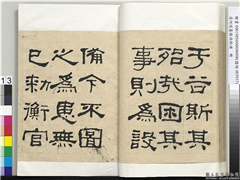 于谷斯其
殆哉困其
事則為設
備今不圖
之為患無
已勑衡官
13